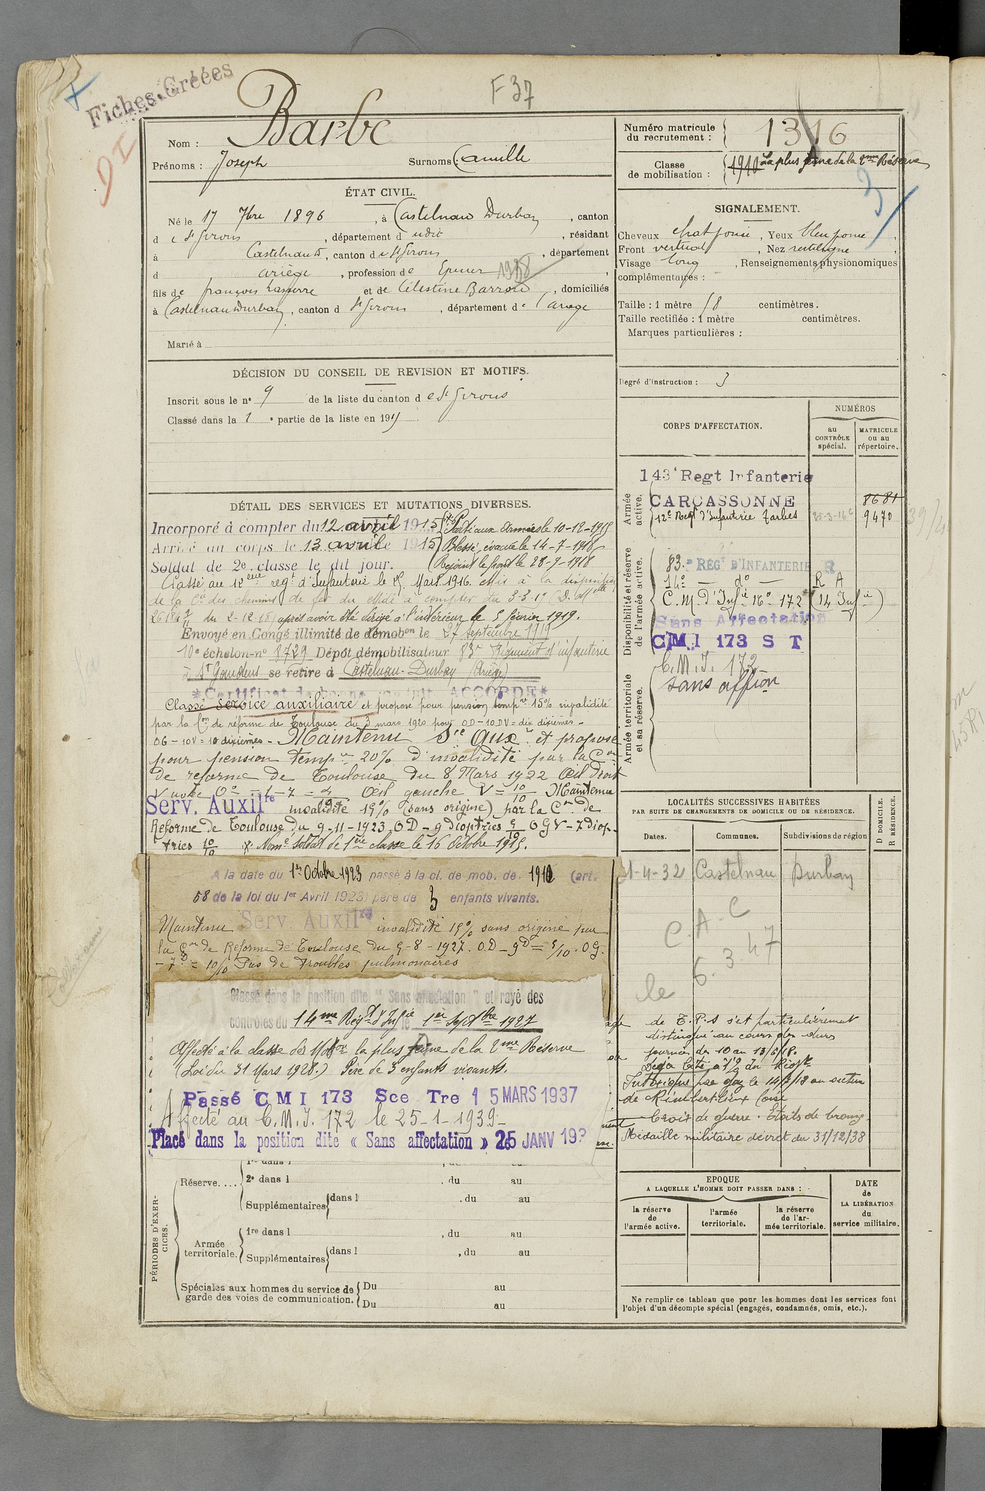 Fiches Créées
F 37
Nom : Barbe
Prénoms : Joseph Surnoms : Camille
Numéro matricule du recrutement : 1316
Classe de mobilisation : 1910 La plus jeune de la 2me Réserve
ÉTAT CIVIL.
Né le 17 7bre 1896, à Castelnau Durban, canton
d e St Girons, département d , résidant
à Castelnau d, canton d e St Girons, département
d ariège, profession de
fils de françois et de Célestine, domiciliés
à Castelnau Durban, canton d St Girons, département d e l'ariège
Marié à
SIGNALEMENT.
Cheveux chat foncé, Yeux bleu foncé,
Front vertical, Nez rectiligne
Visage long, Renseignements physionomiques
complémentaires :
Taille : 1 mètre 58 centimètres.
Taille rectifiée : 1 mètre centimètres.
Marques particulières :
Degré d'instruction : 3
DÉCISION DU CONSEIL DE REVISION ET MOTIFS.
Inscrit sous le no 9 de la liste du canton d e St Girons
Classé dans la 1 e partie de la liste en 191
DÉTAIL DES SERVICES ET MUTATIONS DIVERSES.
Incorporé à compter du 12 avril 1915 Parti aux Armées le 10-12-1915
Arrivé au corps le 13 avril 1915 Blessé, évacué le 14-7-1918
Soldat de 2e classe le dit jour. Rejoint le front le 28-9-1918
Passé au 12eme regt d'Infanterie le Mars 1916. Mis à la disposition
de la Cie des chemins de fer du Midi à compter du 3-3-19
du 2-12-18) après avoir été dirigé à l'intérieur le 5 février 1919.
Envoyé en Congé illimité de démobon le 27 septembre 1919
10e échelon-no 8729 Dépôt démobilisateur 83e Régiment d'infanterie
à St Gaudens se retire à Castelnau-Durban (Ariège)
*Certificat de bonne conduite ACCORDÉ*
Classé service auxiliaire et proposé pour pension tempre 15% invalidité
par la Con de réforme de Toulouse du 3 mars 1920 pour OD-10 DV = dix dixièmes -
OG - 10 V = 10 dixièmes - Maintenu Sce Auxre et proposé
pour pension tempre 20% d'invalidité par la Con
de réforme de Toulouse du 8 Mars 1922 Œil droit
Œil gauche V = 10/10 Maintenu
Serv. Auxilre invalidité 15% (sans origine) par la Con de
Réforme de Toulouse du 9-11-1923 OD - 9 dioptries OG V - 7 diop-
tries 10/10 Nomé Soldat de 1ère classe le 16 Octobre 1915.
A la date du 1er Octobre 1923 passé à la cl. de mob. de 1910 (art.
58 de la loi du 1er Avril 1923) père de 3 enfants vivants.
Maintenu Serv Auxilre invalidité 15% sans origine par
la Con de Réforme de Toulouse du 9-8-1927. O.D - 9D = 5/10. O.G.
- 7D = 10/10 Pas de troubles pulmonaires
Classé dans la position dite " Sans affectation " et rayé des
contrôles du 14me Régt d'Infie le 1er Septbre 1927
Affecté à la classe de Mobon la plus jeune de la 2me Réserve
(Loi du 31 Mars 1928.) Père de 3 enfants vivants.
Passé CMI 173 Sce Tre 15 MARS 1937
Affecté au C.M.I. 172 le 25-1-1939-
Placé dans la position dite « Sans affectation » 25 JANV 19
CORPS D'AFFECTATION.
NUMÉROS
au CONTRÔLE spécial.
MATRICULE ou au répertoire.
Armée active.
143e Regt Infanterie
CARCASSONNE 8681
12e Regt d'Infanterie Tarbes 9470
Disponibilité et réserve de l'armée active.
83e REGt D'INFANTERIE R
14e — do — R A
C.M. d'Infie 16e 172 (14 Infie)
Sans Affectation
CMI 173 S T
Armée territoriale et sa réserve.
C.M.I. 172
sans affion
LOCALITÉS SUCCESSIVES HABITÉES
PAR SUITE DE CHANGEMENTS DE DOMICILE OU DE RÉSIDENCE.
Dates. Communes. Subdivisions de région
D DOMICILE. R RÉSIDENCE.
21-4-32 Castelnau Durban
C.A.C
le 6.3.47
de T.P.S s'est particulièrement
distingué au cours des durs
journées du 10 au 13/6/18.
Déjà Cité à l'O du Régt
par gaz le 14/7/18 au secteur
de Rimbertlieux Oise
Croix de guerre. Étoile de bronze
Médaille militaire décret du 31/12/38
PÉRIODES D'EXERCICES.
Réserve....
2e dans l , du au
Supplémentaires dans l , du au
Armée territoriale.
1re dans l , du au
Supplémentaires dans l , du au
Spéciales aux hommes du service de garde des voies de communication. Du au
Du au
EPOQUE
A LAQUELLE L'HOMME DOIT PASSER DANS :
la réserve de l'armée active.
l'armée territoriale.
la réserve de l'armée territoriale.
DATE de LA LIBÉRATION du service militaire.
Ne remplir ce tableau que pour les hommes dont les services font
l'objet d'un décompte spécial (engagés, condamnés, omis, etc.).